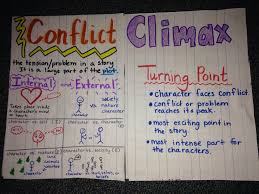 Conflict
the tension/problem in a story.
It is a large part of the plot.
Internal and External:
Takes place inside
a character's
society
vs
nature
vs.
character
character vs self
character vs character
character vs nature
character vs. society
land
animals
weather
Climax
Turning Point
• character faces conflict
• conflict or problem
reaches its peak.
• most exciting point in
the story.
• most intense part for
the characters.